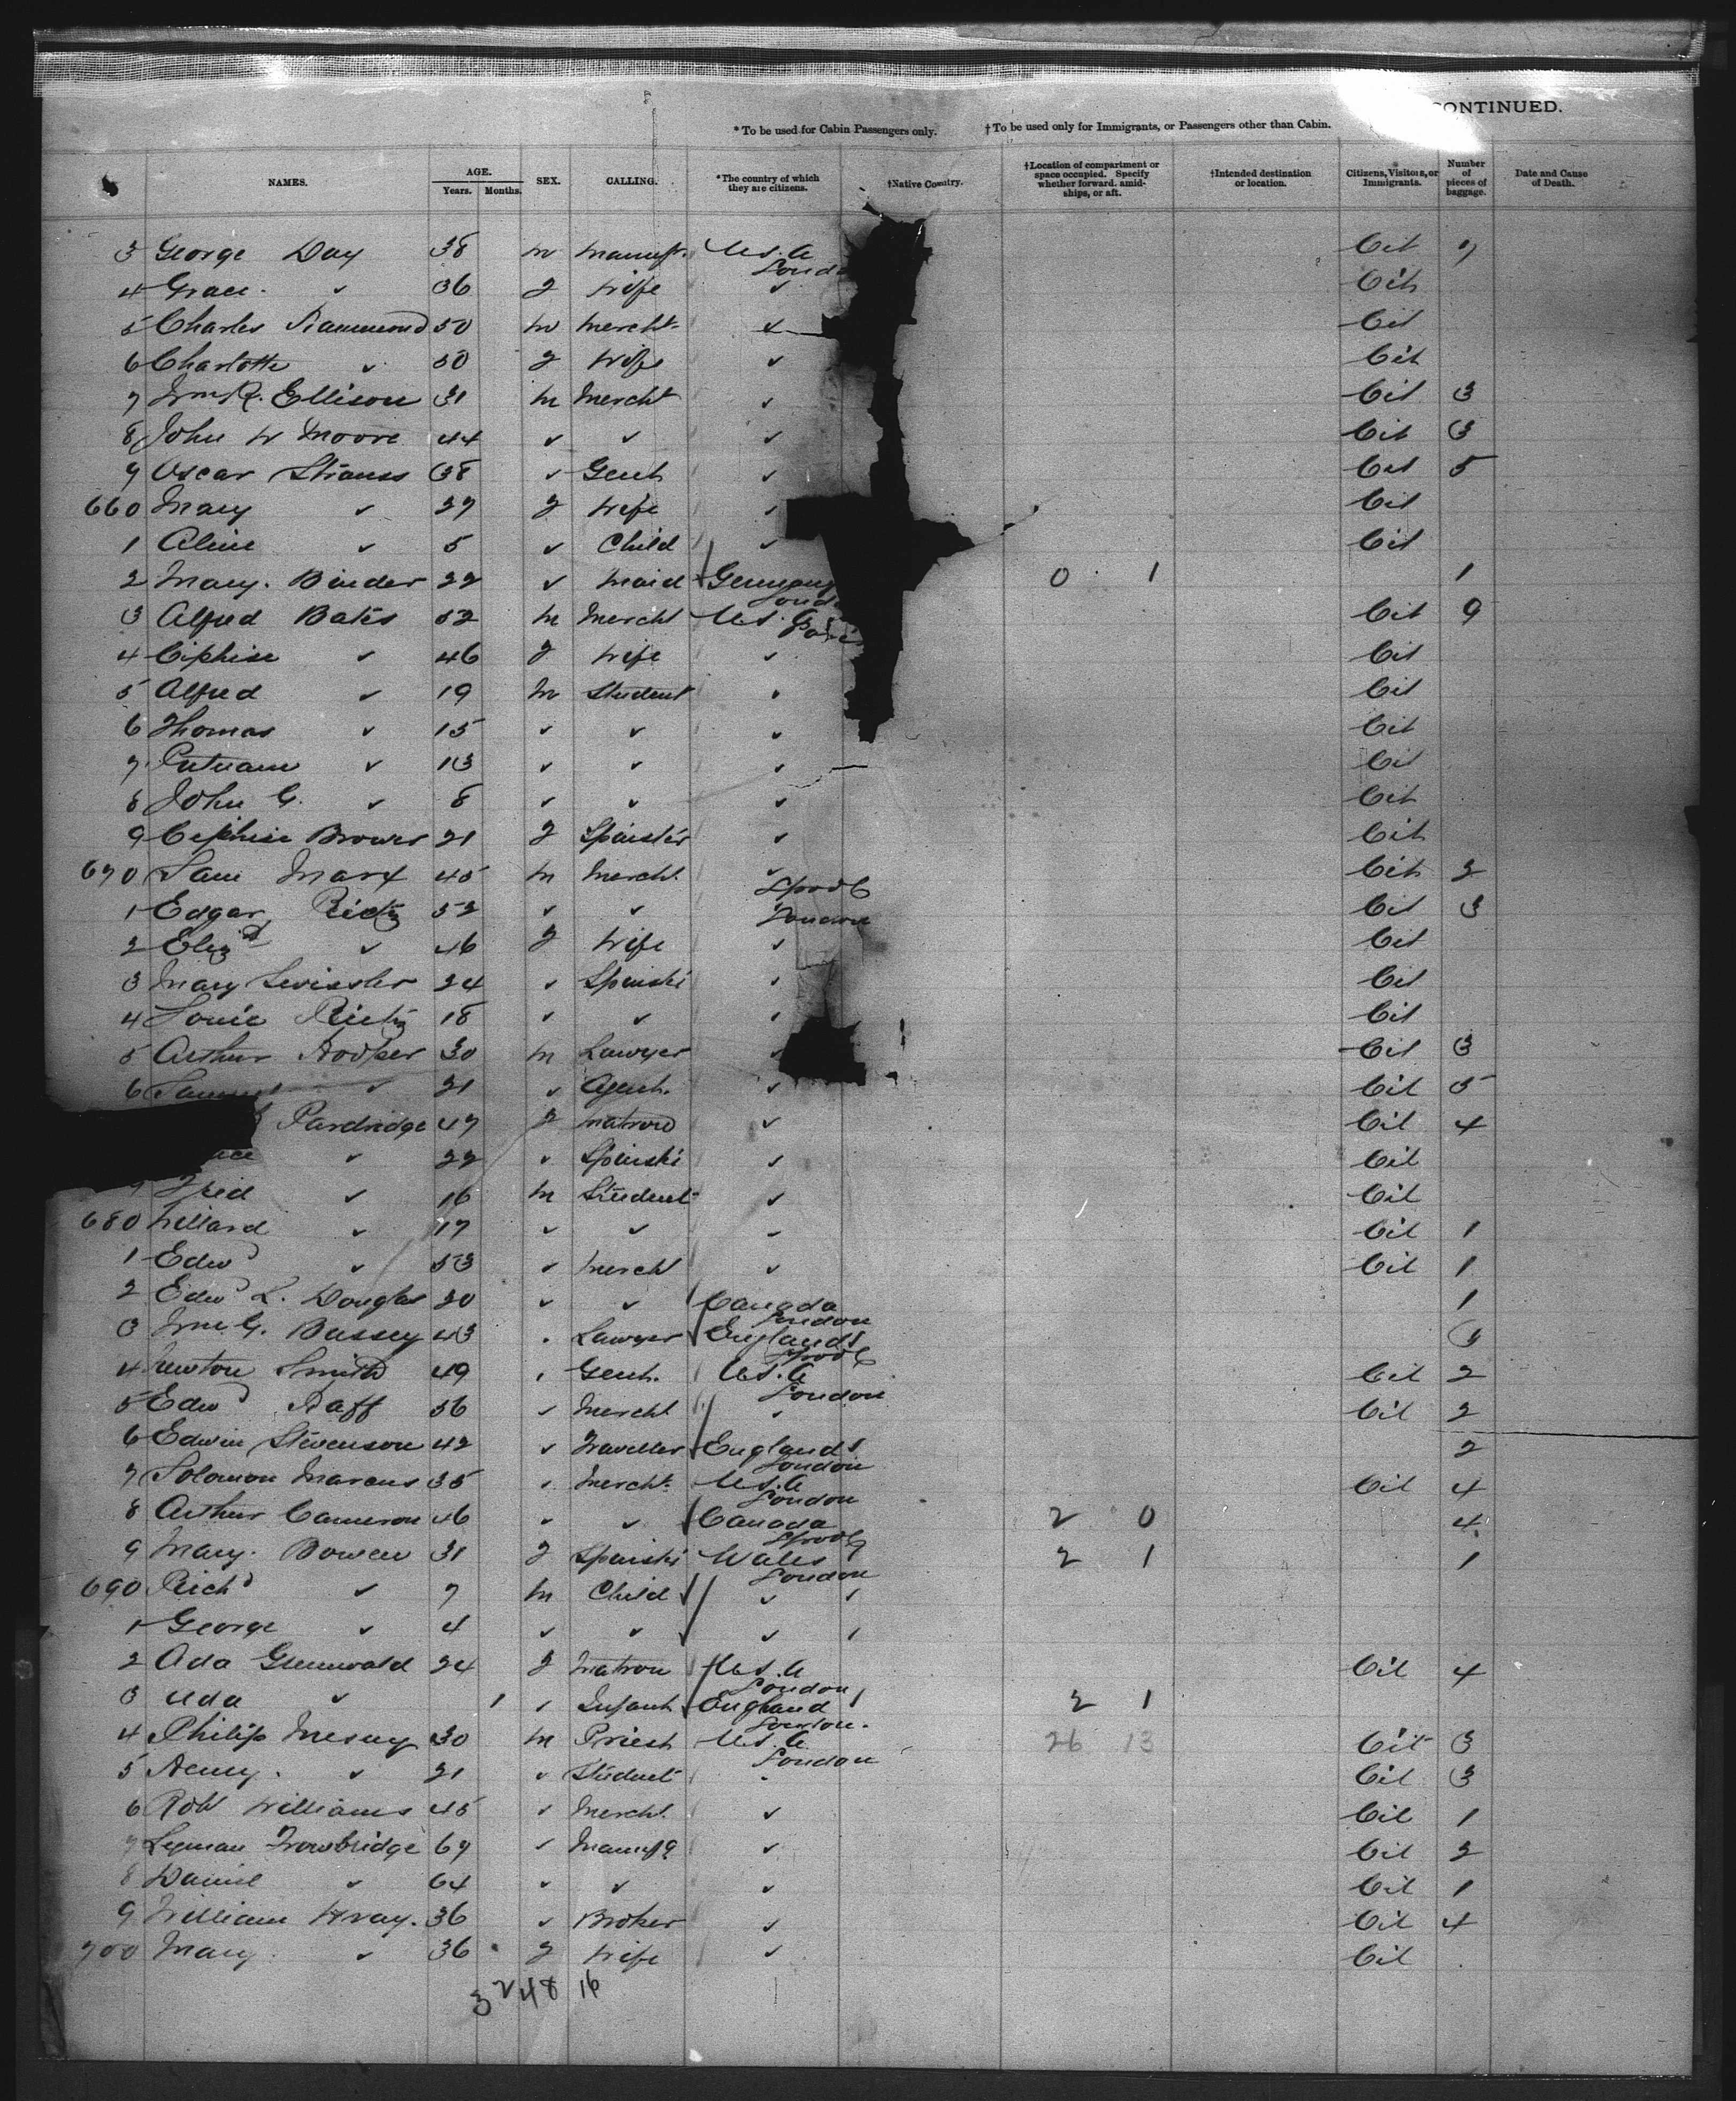 CONTINUED.
* To be used for Cabin Passengers only. † To be used only for Immigrants, or Passengers other than Cabin.
NAMES. AGE. Years. Months. SEX. CALLING. *The country of which they are citizens. †Native Country. †Location of compartment or space occupied. Specify whether forward, amidships, or aft. †Intended destination or location. Citizens, Visitors, or Immigrants. Number of pieces of baggage. Date and Cause of Death.
3 George Day 38 m Manufr. U.S.A Cit 7
Lond
4 Grace " 36 f Wife " Cit
5 Charles Hammond 50 m Mercht " Cit
6 Charlotte " 50 f Wife " Cit
7 Wm R. Ellison 31 m Mercht " Cit 3
8 John W Moore 44 " " " Cit 3
9 Oscar Strauss 38 " Gent " Cit 5
660 Mary " 27 f Wife " Cit
1 Aline " 5 " Child " Cit
2 Mary Binder 22 " Maid Germany 0 1 1
Lond
3 Alfred Bates 52 m Mercht U.S.A Cit 9
4 Ciphise " 46 f Wife " Cit
5 Alfred " 19 m Student " Cit
6 Thomas " 15 " " " Cit
7 Putnam " 13 " " " Cit
8 John G. " 8 " " " Cit
9 Cephise Brower 21 f Spinster " Cit
670 Sam Marx 45 m Mercht. " Cit 2
Lpool
1 Edgar 52 " " London Cit 3
2 Eliz " 46 f Wife " Cit
3 Mary 24 " Spinstr " Cit
4 Louie 18 " " " Cit
5 Arthur Hooper 30 m Lawyer " Cit 3
6 " 21 " Agent. " Cit 5
Pardridge 47 f Matron " Cit 4
" 22 " Spinstr " Cit
9 Fred " 16 m Student " Cit
680 Willard " 17 " " " Cit 1
1 Edwd " 53 " Mercht " Cit 1
2 Edwd L. Douglas 30 " " Canada 1
London
3 Wm G. Bussey 43 " Lawyer England 1
Lpool
4 Newton Smith 49 " Gent. U.S.A Cit 2
London
5 Edwd Haff 56 " Mercht " Cit 2
6 Edwin Stevenson 42 " Traveller England 2
London
7 Solomon Marcus 35 " Mercht. U.S.A Cit 4
London
8 Arthur Cameron 46 " " Canada 2 0 4
Lpool
9 Mary Bowen 31 f Spinstr Wales 2 1 1
London
690 Richd " 7 m Child " 1
1 George " 4 " " " 1
2 Ada Grunwald 24 f Matron U.S.A Cit 4
London
3 Ada " 1 " Infant England 1 2 1
London.
4 Philip Mesny 30 m Priest U.S.A 26 13 Cit 3
London
5 Henry " 21 " Student " Cit 3
6 Robt Williams 45 " Mercht. " Cit 1
7 Lyman Trowbridge 67 " Manufg " Cit 2
8 Daniel " 64 " " " Cit 1
9 William Wray. 36 " Broker " Cit 4
700 Mary " 36 f Wife " Cit
32 48 16